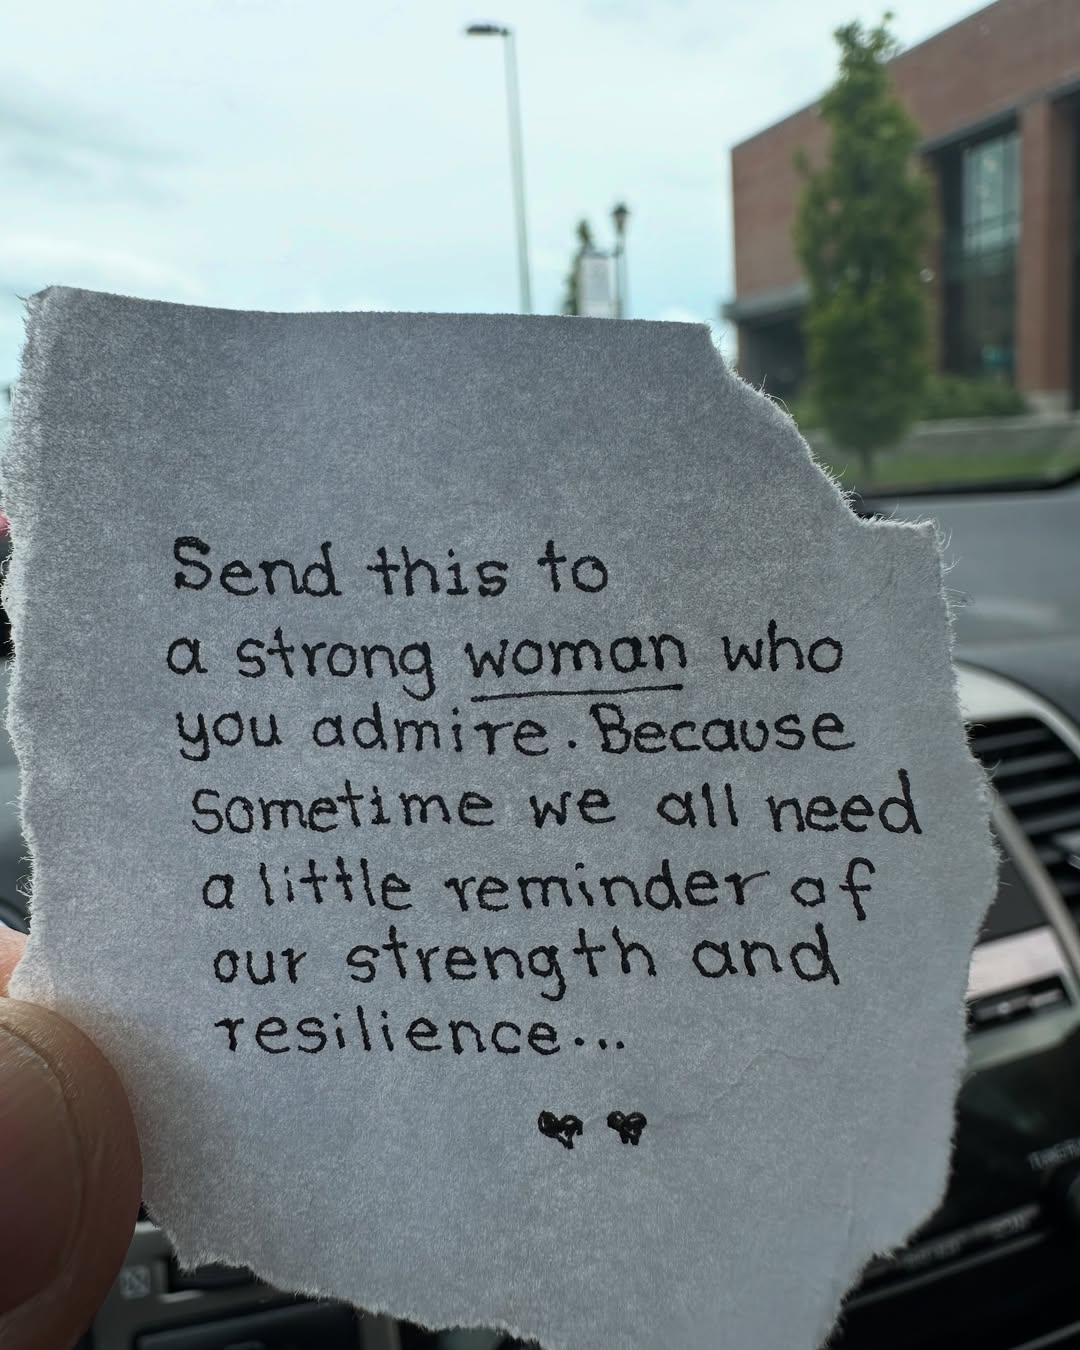 Send this to
a strong woman who
you admire. Because
sometime we all need
a little reminder of
our strength and
resilience...